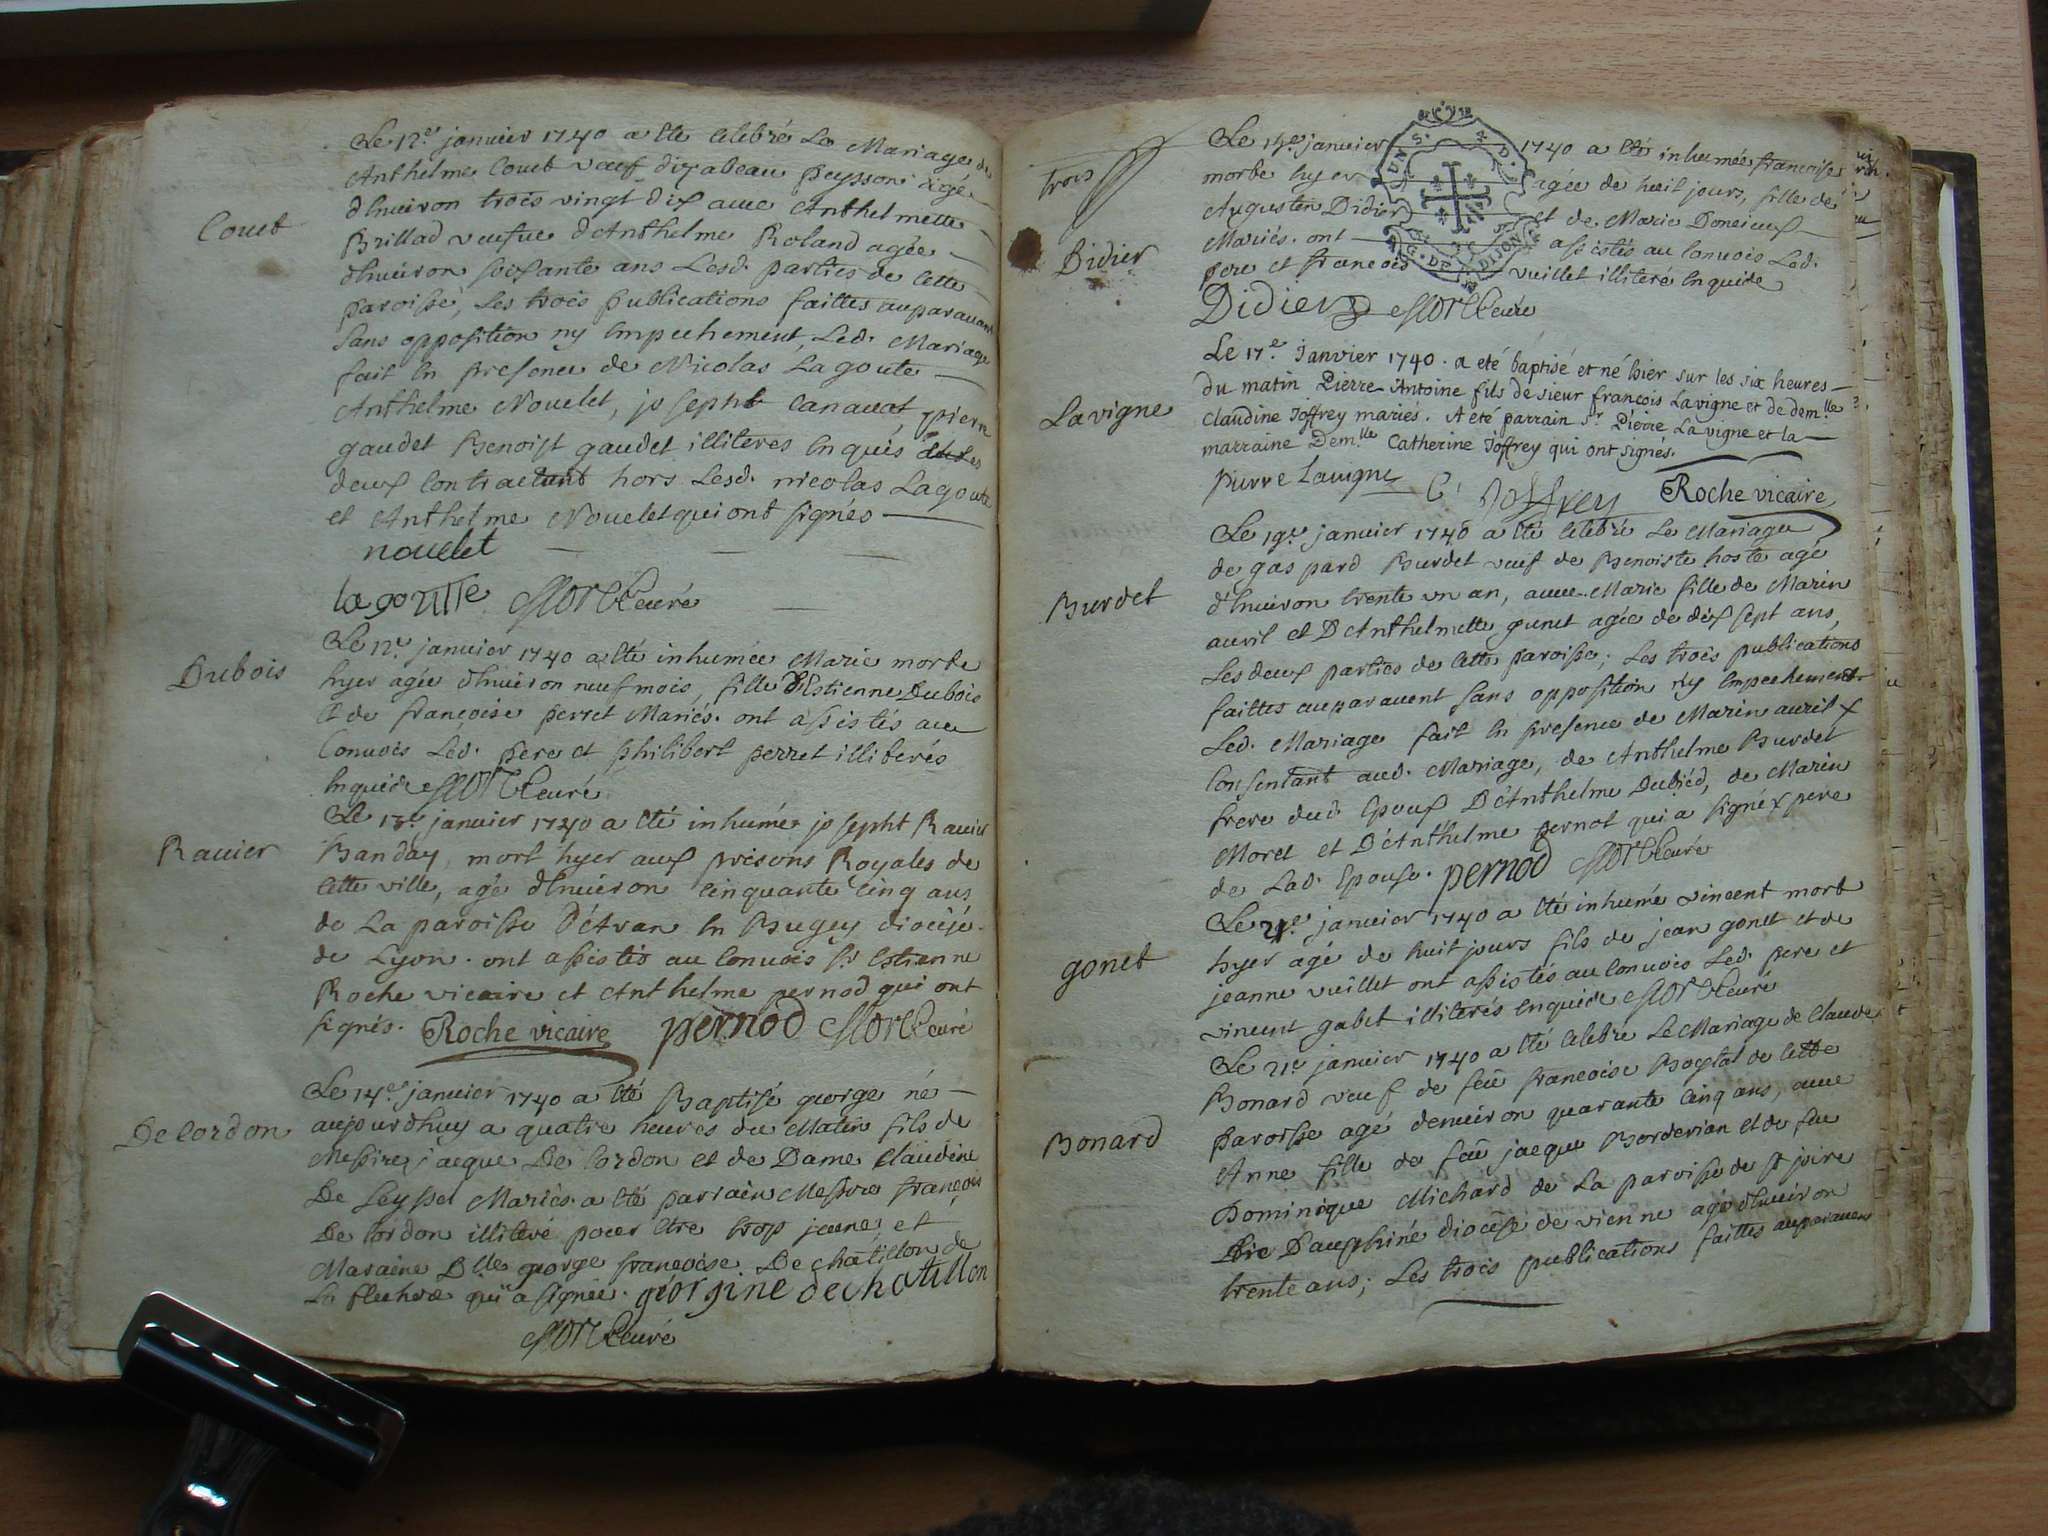 Le 12e janvier 1740 a été celebré Le Mariage de
Couet
Anthelme Couet veuf dizabeau peysson agé
d'Environ trois vingt dix avec Anthelmette
Brillad veufve d'Anthelme Roland agée
d'Environ soixante ans Lesd. parties de cette
paroisse, Les trois publications faittes auparavant
sans opposition ny Empechement, Led. Mariage
fait En presence de Nicolas Lagoute
Anthelme Nouelet, josepht Canauat, pierre
gaudet Benoist gaudet illiteres Enquis
deux Contractant hors Lesd. nicolas Lagoute
et Anthelme Nouelet qui ont signés
nouelet
lagoutte curé
Dubois
Le 12e janvier 1740 a été inhumée Marie morte
hyer agée d'Environ neuf mois, fille d'Estienne Dubois
Et de françoise perret Mariés. ont assistés au
Convois Led. pere et philibert perret illiterés
Enquis curé
Ravier
Le 13e janvier 1740 a été inhumé josepht Ravier
Banday mort hyer aux prisons Royales de
cette ville, agé d'Environ cinquante cinq ans
de La paroisse d'Evran En Bugey diocese
de Lyon. ont assistés au Convois Sr Estienne
Roche vicaire et Anthelme pernod qui ont
signés. Roche vicaire pernod curé
De Cordon
Le 14e janvier 1740 a été Baptisé george né
aujourdhuy a quatre heures du Matin fils de
Messire jacque De Cordon et de Dame Claudine
De Seyssel Mariés. a été parrain Messire françois
De Cordon illiteré pour être trop jeune, et
Maraine Dlle george françoise De châtillon de
La flechere qui a signée. georgine dechatillon
curé
trois
Didier
Le 15e janvier 1740 a été inhumée françoise
morte hyer agée de huit jours, fille de
Augustin Didier et de Marie Donzieux
Mariés. ont assistés au Convois Led.
pere et françois vuillet illiteré Enquis
Didier curé
Lavigne
Le 17e Janvier 1740. a eté baptisé et né hier sur les six heures
du matin Pierre-Antoine fils de sieur francois Lavigne et de demlle
Claudine Joffrey mariés. A eté parrain Sr Pierre Lavigne et la
marraine Demlle Catherine Joffrey qui ont signés.
pierre Lauigne C. Joffrey Roche vicaire
Burdet
Le 19e janvier 1740 a été celebré Le Mariage
de gaspard Burdet veuf de Benoiste hoste agé
d'Environ trente un an, avec Marie fille de Marin
auril et D'Anthelmette gunet agée de dix sept ans,
Les deux parties de cette paroisse; Les trois publications
faittes auparavent sans opposition ny Empechement
Led. Mariage fait En presence de Marin auril x
Consentant aud. Mariage, de Anthelme Burdet
frere dud. Epoux D'Anthelme Dubiéd, de Marin
Moret et D'Anthelme pernot qui a signé x pere
de Lad. Epouse. pernod curé
gonet
Le 21e janvier 1740 a été inhumé vincent mort
hyer agé de huit jours fils de jean gonet et de
jeanne vuillet ont assistés au Convois Led. pere et
vincent gabet illiterés Enquis curé
Bonard
Le 21e janvier 1740 a été celebré Le Mariage de Claude
Bonard veuf de feu françoise Boystal de cette
paroisse agé denviron quarante cinq ans, avec
Anne fille de feu jacque Borderian et de feu
Dominique Michard de La paroisse de St joire
Dauphiné diocese de vienne agé d'Environ
trente ans; Les trois publications faittes auparavent